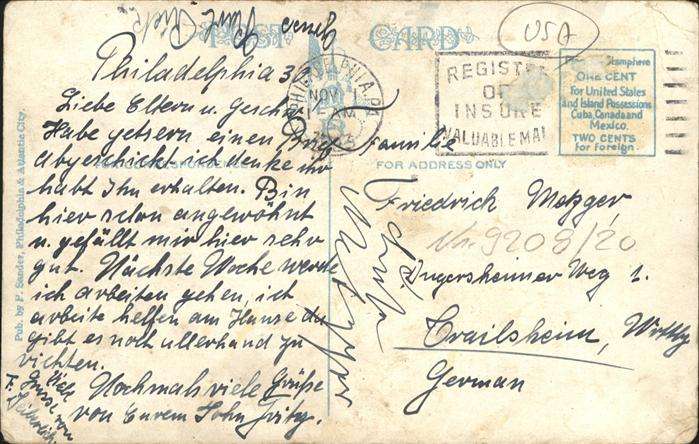 POST CARD
USA
Philadelphia 30.
Liebe Eltern u. Geschw.
Habe gestern einen Brief
abgeschickt ich denke ihr
habt Ihn erhalten. Bin
hier schon angewöhnt
u. gefällt mir hier sehr
gut. Nächste Woche werde
ich arbeiten gehen, ich
arbeite helfen am Hause da
gibt es noch allerhand zu
richten.
Nochmals viele Grüße
von Eurem Sohn Fritz.
Grüsse von
PHILADELPHIA, PA
NOV 1
AM
REGISTER
OR
INSURE
VALUABLE MAIL
ONE CENT
for United States
and Island Possessions
Cuba, Canada and
Mexico.
TWO CENTS
for Foreign.
FOR ADDRESS ONLY
Familie
Friedrich Metzger,
Nr. 9208/20
Ingersheimer Weg 1.
Crailsheim, Wrttbg
German
Pub. by P. Sander, Philadelphia & Atlantic City.